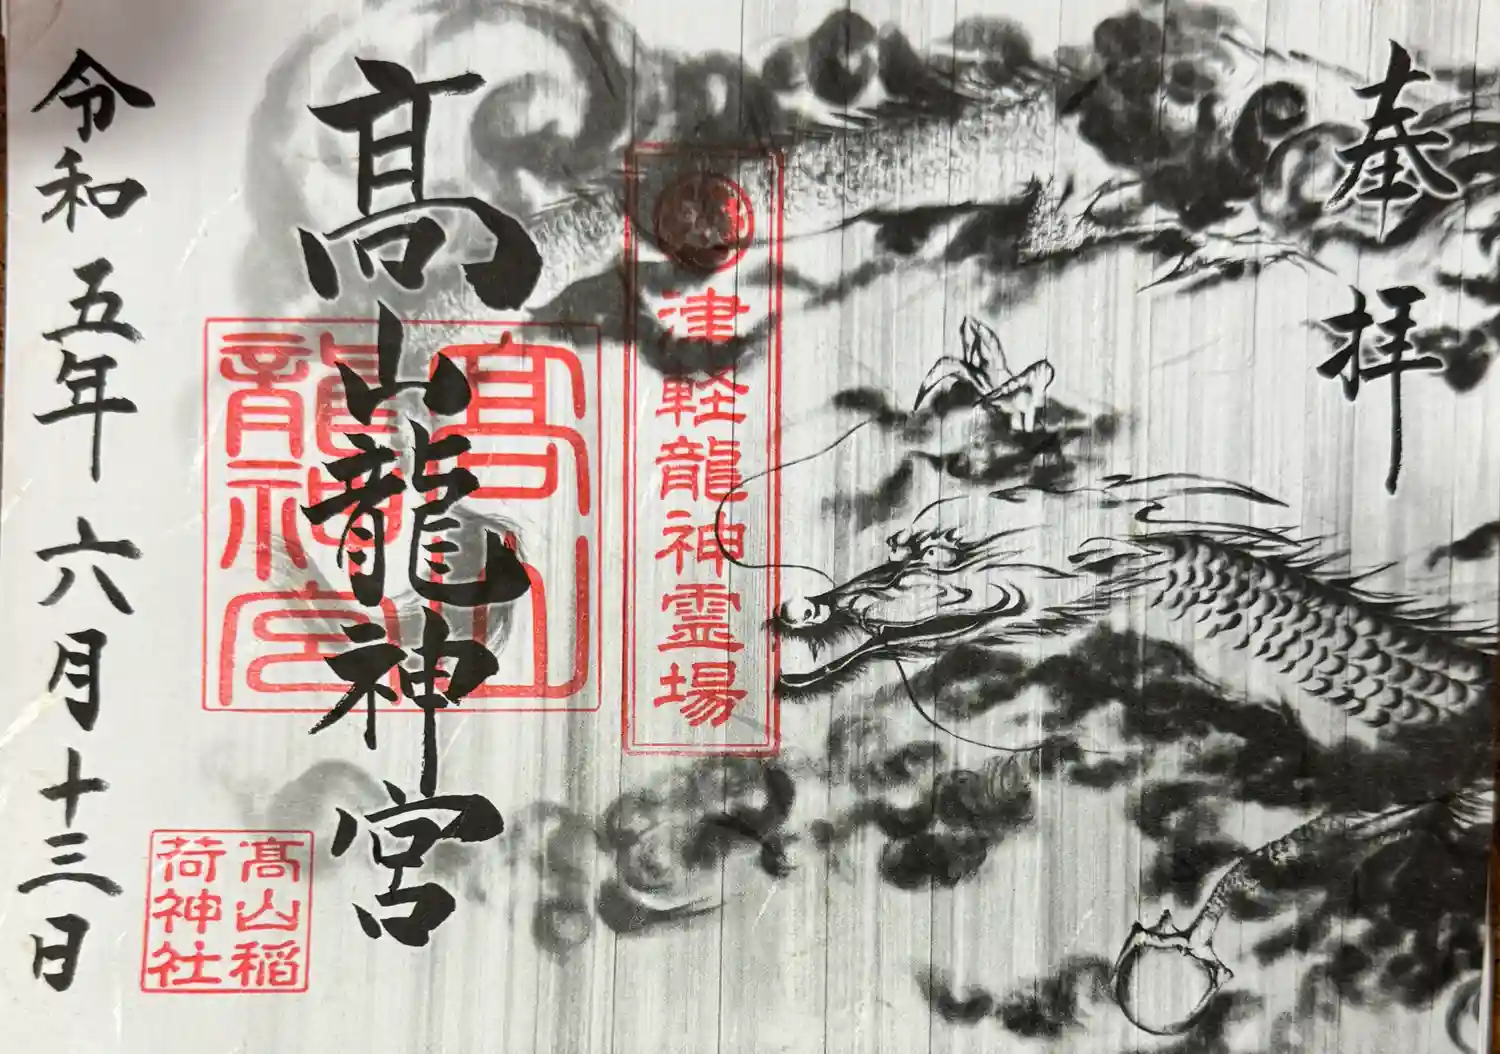 奉拝
津軽龍神霊場
髙山龍神宮
髙山
龍神宮
髙山稲
荷神社
令和五年六月十三日